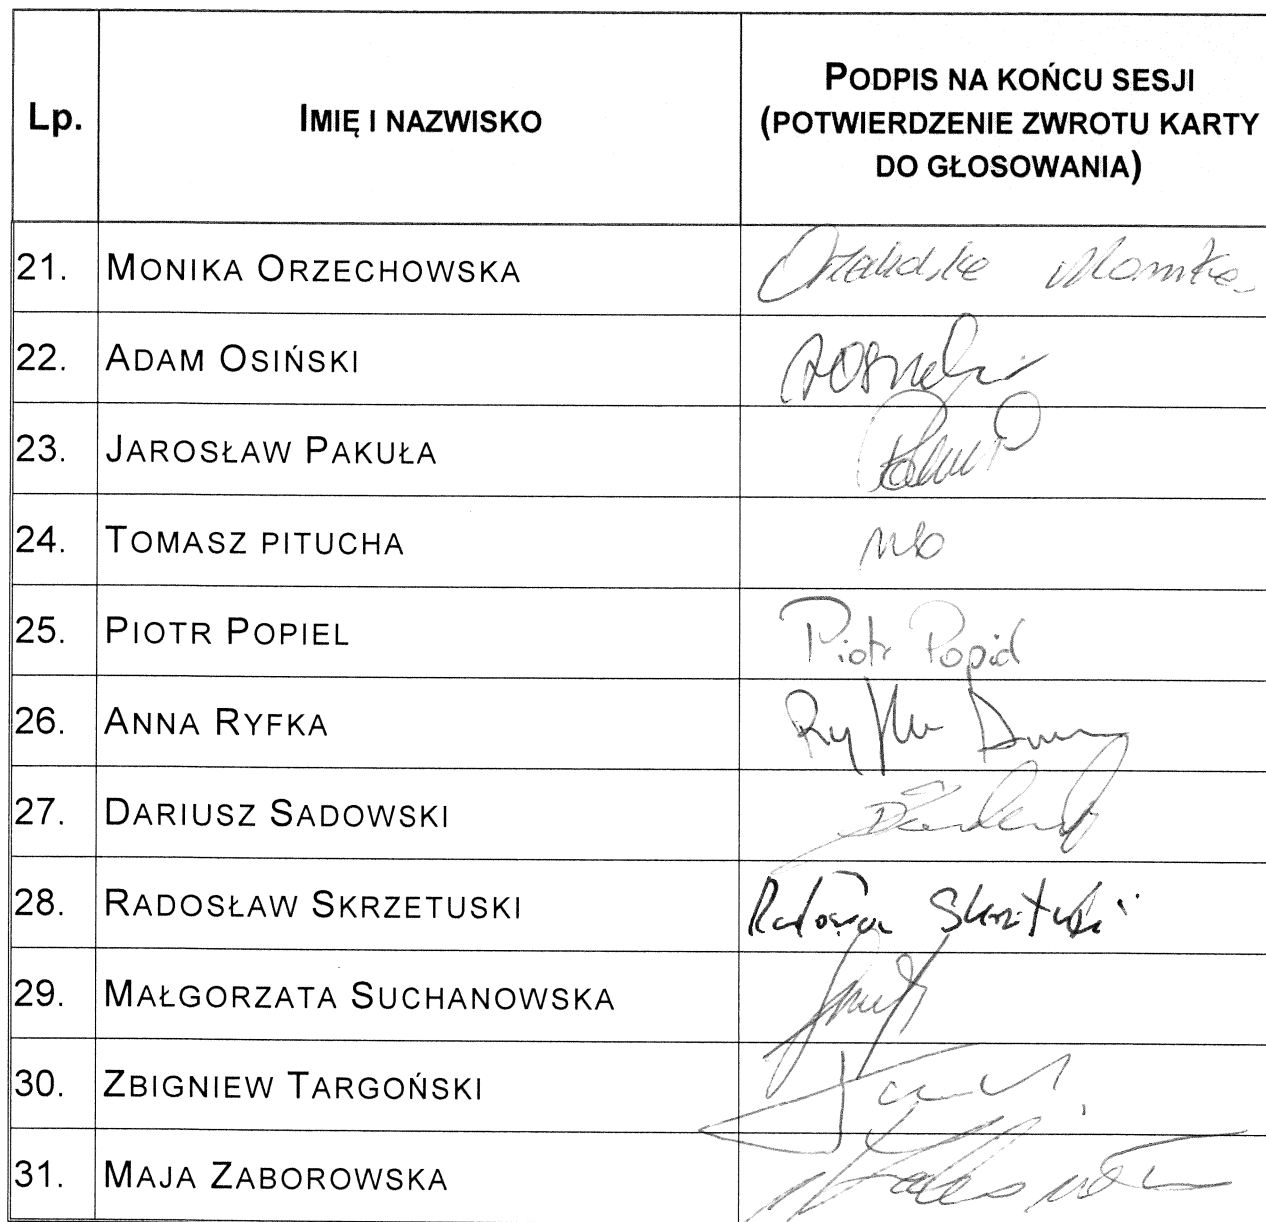 Lp.
IMIĘ I NAZWISKO
PODPIS NA KOŃCU SESJI
(POTWIERDZENIE ZWROTU KARTY
DO GŁOSOWANIA)
21. MONIKA ORZECHOWSKA Monika
22. ADAM OSIŃSKI
23. JAROSŁAW PAKUŁA
24. TOMASZ PITUCHA
25. PIOTR POPIEL Piotr Popiel
26. ANNA RYFKA Ryfka Anna
27. DARIUSZ SADOWSKI
28. RADOSŁAW SKRZETUSKI Radosław Skrzetuski
29. MAŁGORZATA SUCHANOWSKA
30. ZBIGNIEW TARGOŃSKI
31. MAJA ZABOROWSKA